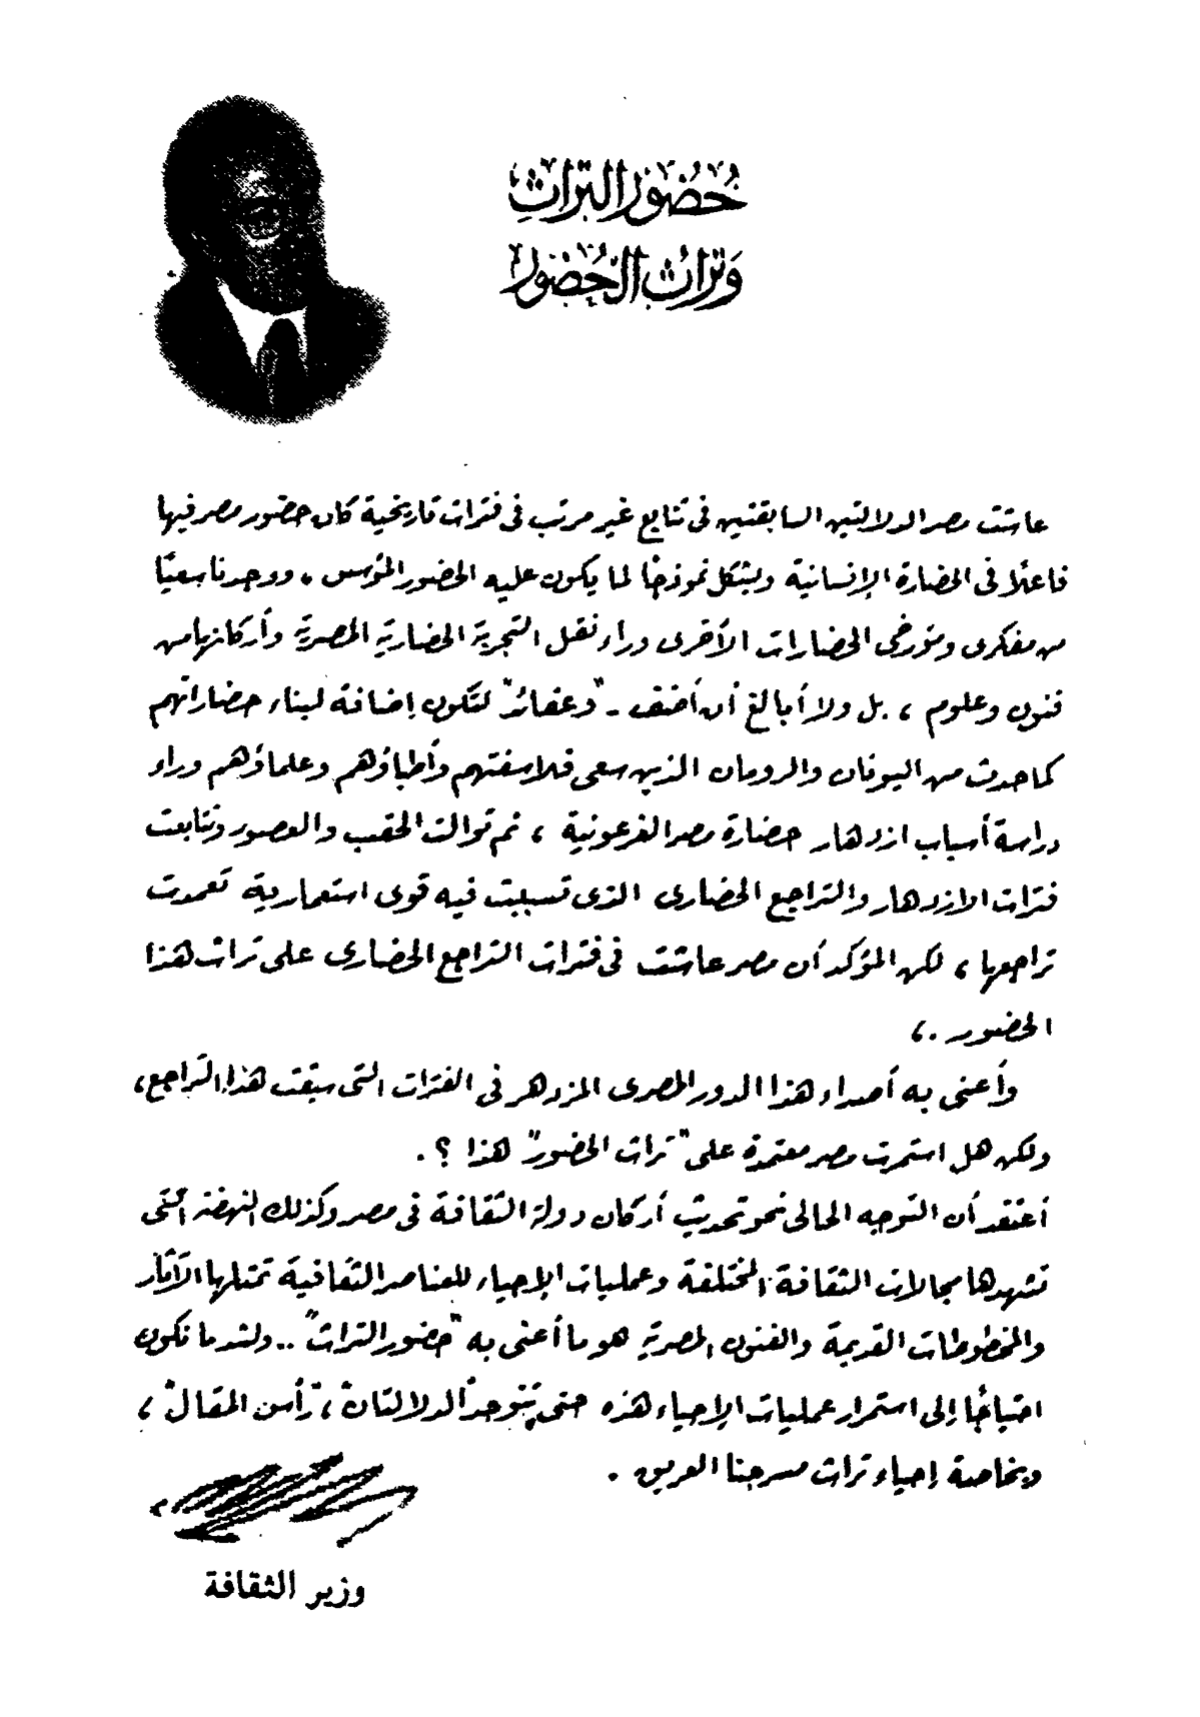 حُضُور التراثِ
وَتراثُ الحُضُور
عاشت مصر الدلالتين السابقتين فى تتابع غير مرتب فى فترات تاريخية كان حضور مصر فيها
فاعلًا فى الحضارة الإنسانية ويشكل نموذجًا لما يكون عليه الحضور المؤسس . ووجدنا سعيًا
من مفكرى ومؤرخى الحضارات الأخرى وراء نقل التجربة الحضارية المصرية وأركانها من
فنون وعلوم ، بل ولا أبالغ أن أضف - "وعقائد" لتكون إضافة لبناء حضاراتهم
كما حدث من اليونان والرومان الذين سعى فلاسفتهم وأطباؤهم وعلماؤهم وراء
دراسة أسباب ازدهار حضارة مصر الفرعونية ، ثم توالت الحقب والعصور وتتابعت
فترات الازدهار والتراجع الحضارى الذى تسببت فيه قوى استعمارية تعمدت
تراجعها ، لكن المؤكد أن مصر عاشت فى فترات التراجع الحضارى على تراث هذا
الحضور .،
وأعنى به أصداء هذا الدور المصرى المزدهر فى الفترات التى سبقت هذا التراجع ،
ولكن هل استمرت مصر معتمدة على "تراث الحضور" هذا ؟ .
أعتقد أن التوجه الحالى نحو تحديث أركان دولة الثقافة فى مصر وكذلك النهضة التى
تشهدها مجالات الثقافة المختلفة وعمليات الإحياء للعناصر الثقافية تمثلها الآثار
والمخطوطات القديمة والفنون المصرية هو ما أعنى به "حضور التراث" .. ولشد ما نكون
احتياجًا إلى استمرار عمليات الإحياء هذه حتى تتوحد الدلالتان ، "رأس المقال" ،
وبخاصة إحياء تراث مسرحنا العريق .
وزير الثقافة